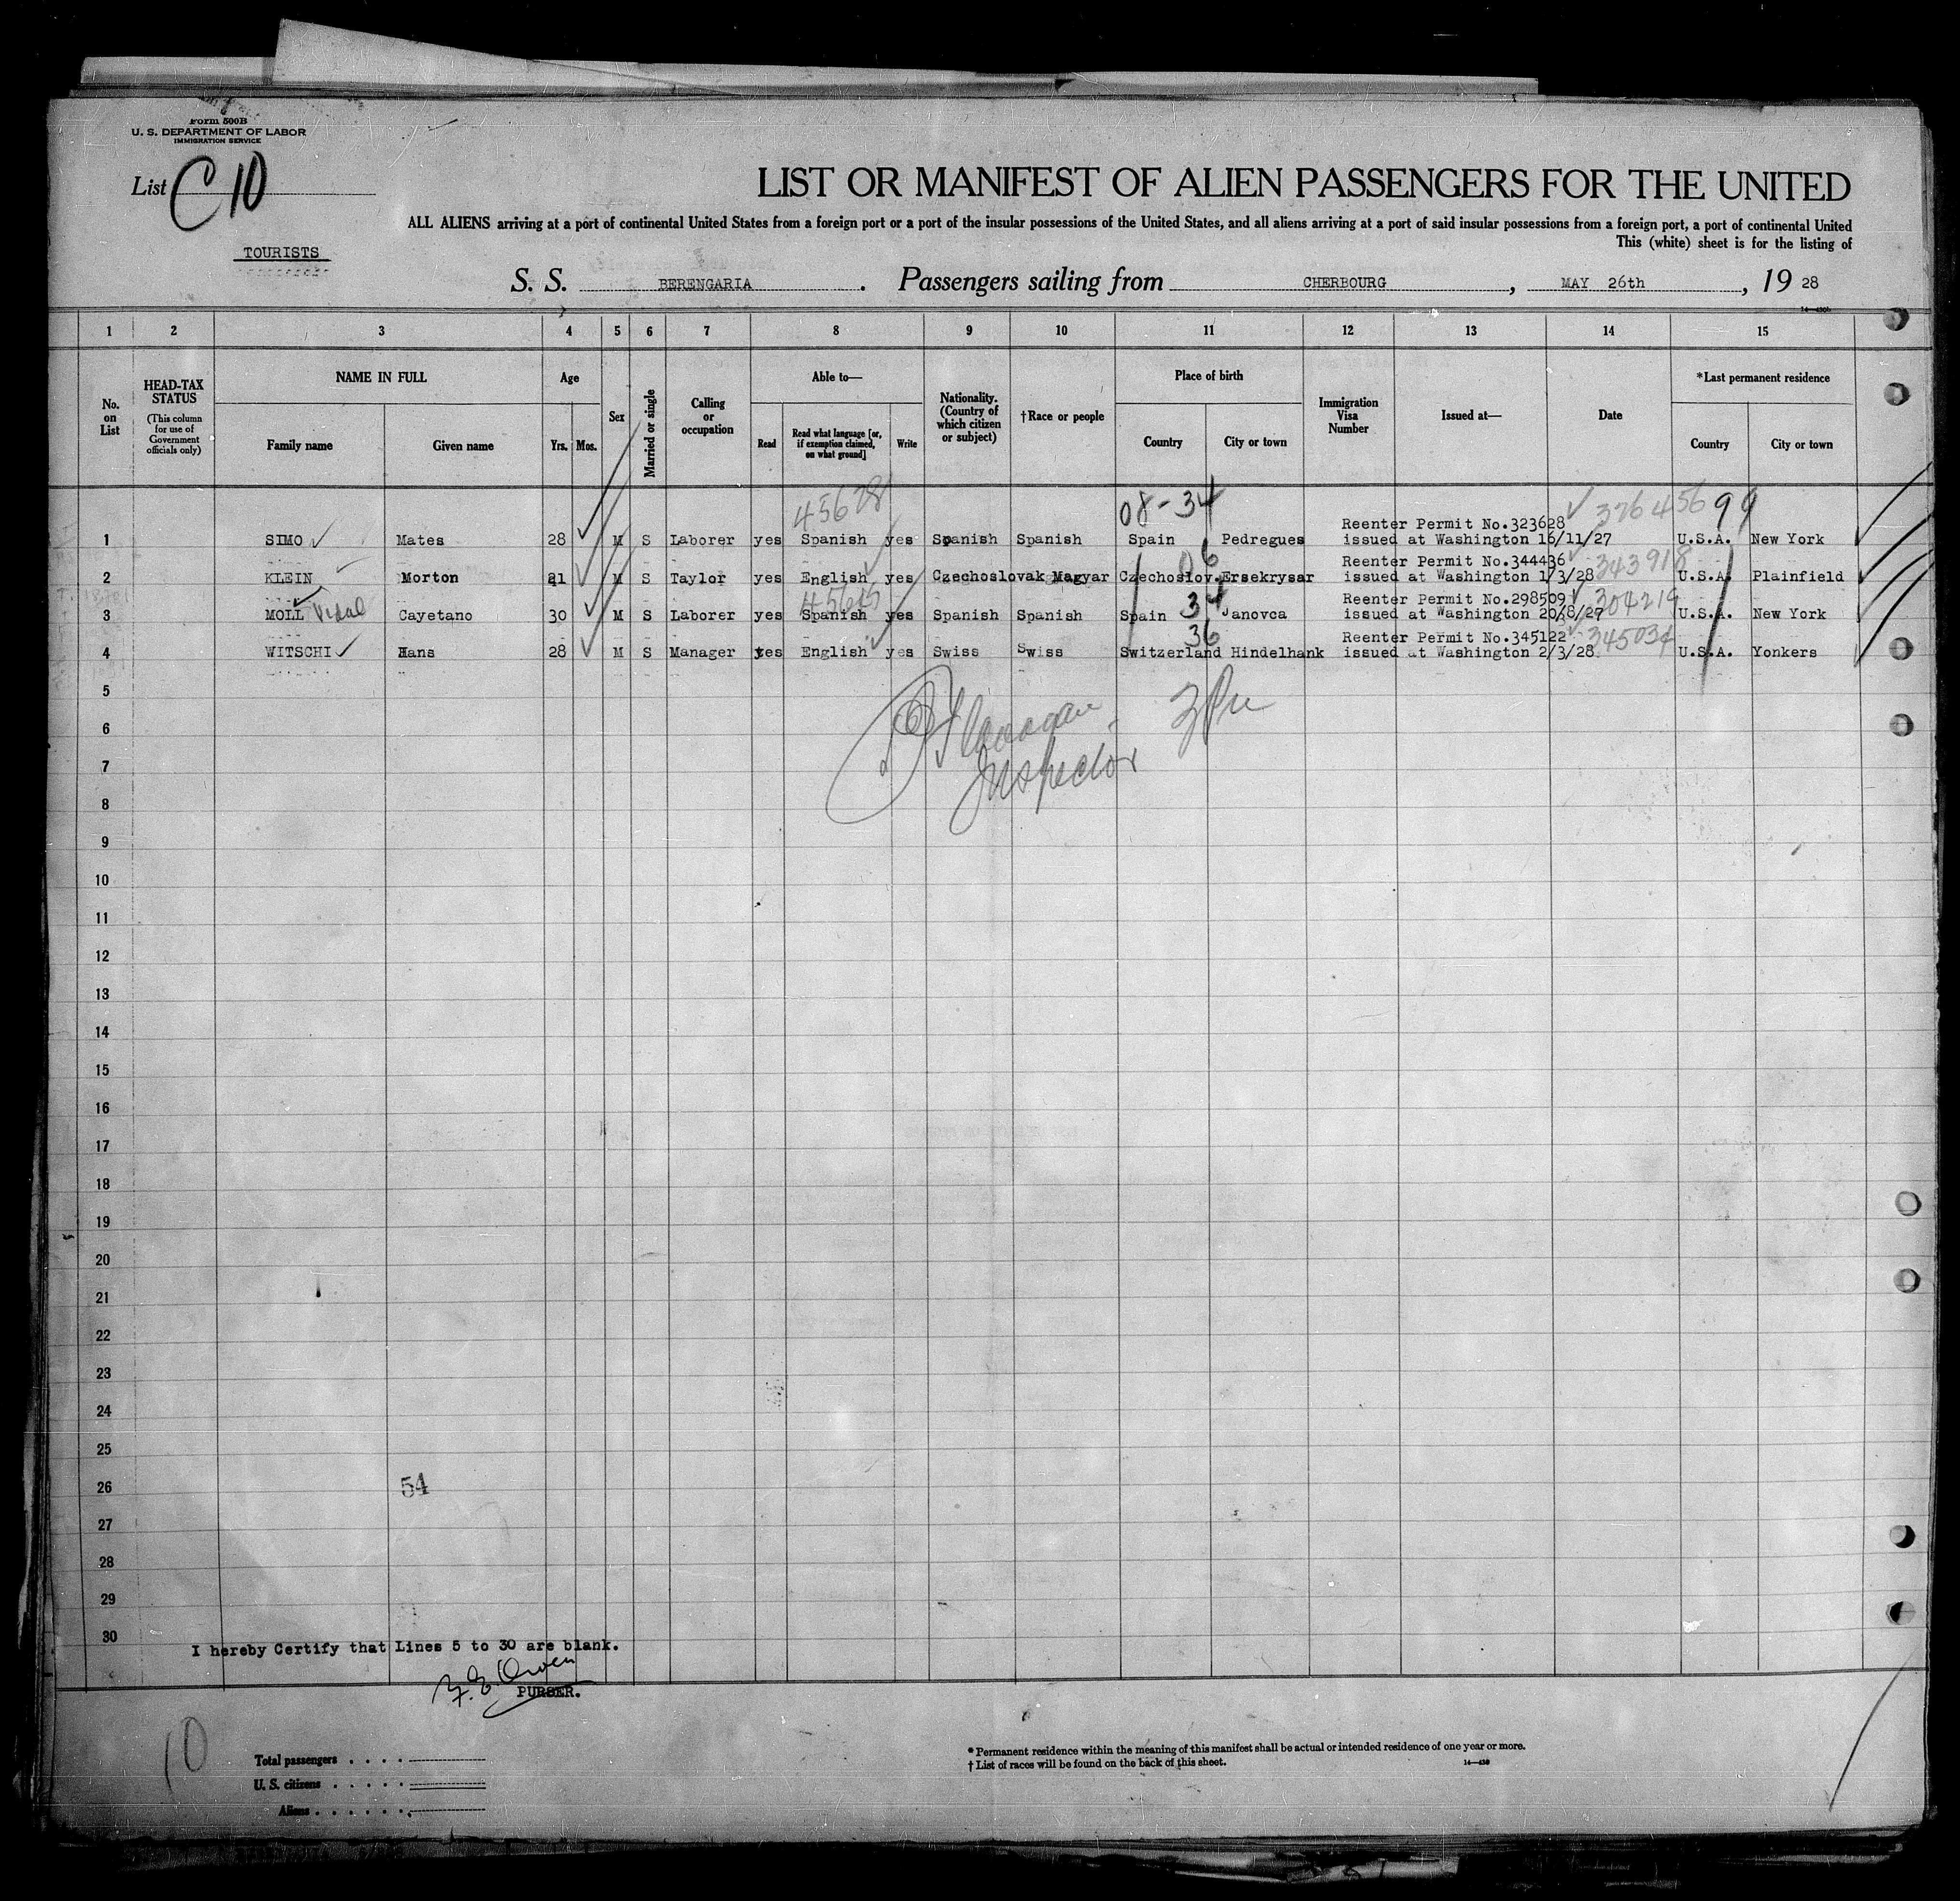 Form 500B
U. S. DEPARTMENT OF LABOR
IMMIGRATION SERVICE
List C 10
LIST OR MANIFEST OF ALIEN PASSENGERS FOR THE UNITED
ALL ALIENS arriving at a port of continental United States from a foreign port or a port of the insular possessions of the United States, and all aliens arriving at a port of said insular possessions from a foreign port, a port of continental United
This (white) sheet is for the listing of
TOURISTS
S. S. BERENGARIA. Passengers sailing from CHERBOURG, MAY 26th, 19 28
1 2 3 4 5 6 7 8 9 10 11 12 13 14 15
No. on List
HEAD-TAX STATUS
(This column for use of Government officials only)
NAME IN FULL
Family name Given name
Age
Yrs. Mos.
Sex
Married or single
Calling or occupation
Able to—
Read
Read what language [or, if exemption claimed, on what ground]
Write
Nationality. (Country of which citizen or subject)
†Race or people
Place of birth
Country City or town
Immigration Visa Number
Issued at—
Date
*Last permanent residence
Country City or town
45628 08-34 99
Reenter Permit No.323628
1 SIMO Mates 28 M S Laborer yes Spanish yes Spanish Spanish Spain Pedregues issued at Washington 16/11/27 U.S.A. New York
06
Reenter Permit No.344436 343918
2 KLEIN Morton 21 M S Taylor yes English yes Czechoslovak Magyar Czechoslov. Ersekrysar issued at Washington 1/3/28 U.S.A. Plainfield
34
Reenter Permit No.298509 304219
3 MOLL Vidal Cayetano 30 M S Laborer yes Spanish yes Spanish Spanish Spain Janovca issued at Washington 20/8/27 U.S.A. New York
36
Reenter Permit No.345122 345034
4 WITSCHI Hans 28 M S Manager yes English yes Swiss Swiss Switzerland Hindelhank issued at Washington 2/3/28 U.S.A. Yonkers
5
6
Inspector
7
8
9
10
11
12
13
14
15
16
17
18
19
20
21
22
23
24
25
26 54
27
28
29
30
I hereby Certify that Lines 5 to 30 are blank.
PURSER.
10
Total passengers
U. S. citizens
Aliens
* Permanent residence within the meaning of this manifest shall be actual or intended residence of one year or more.
† List of races will be found on the back of this sheet.
14—430